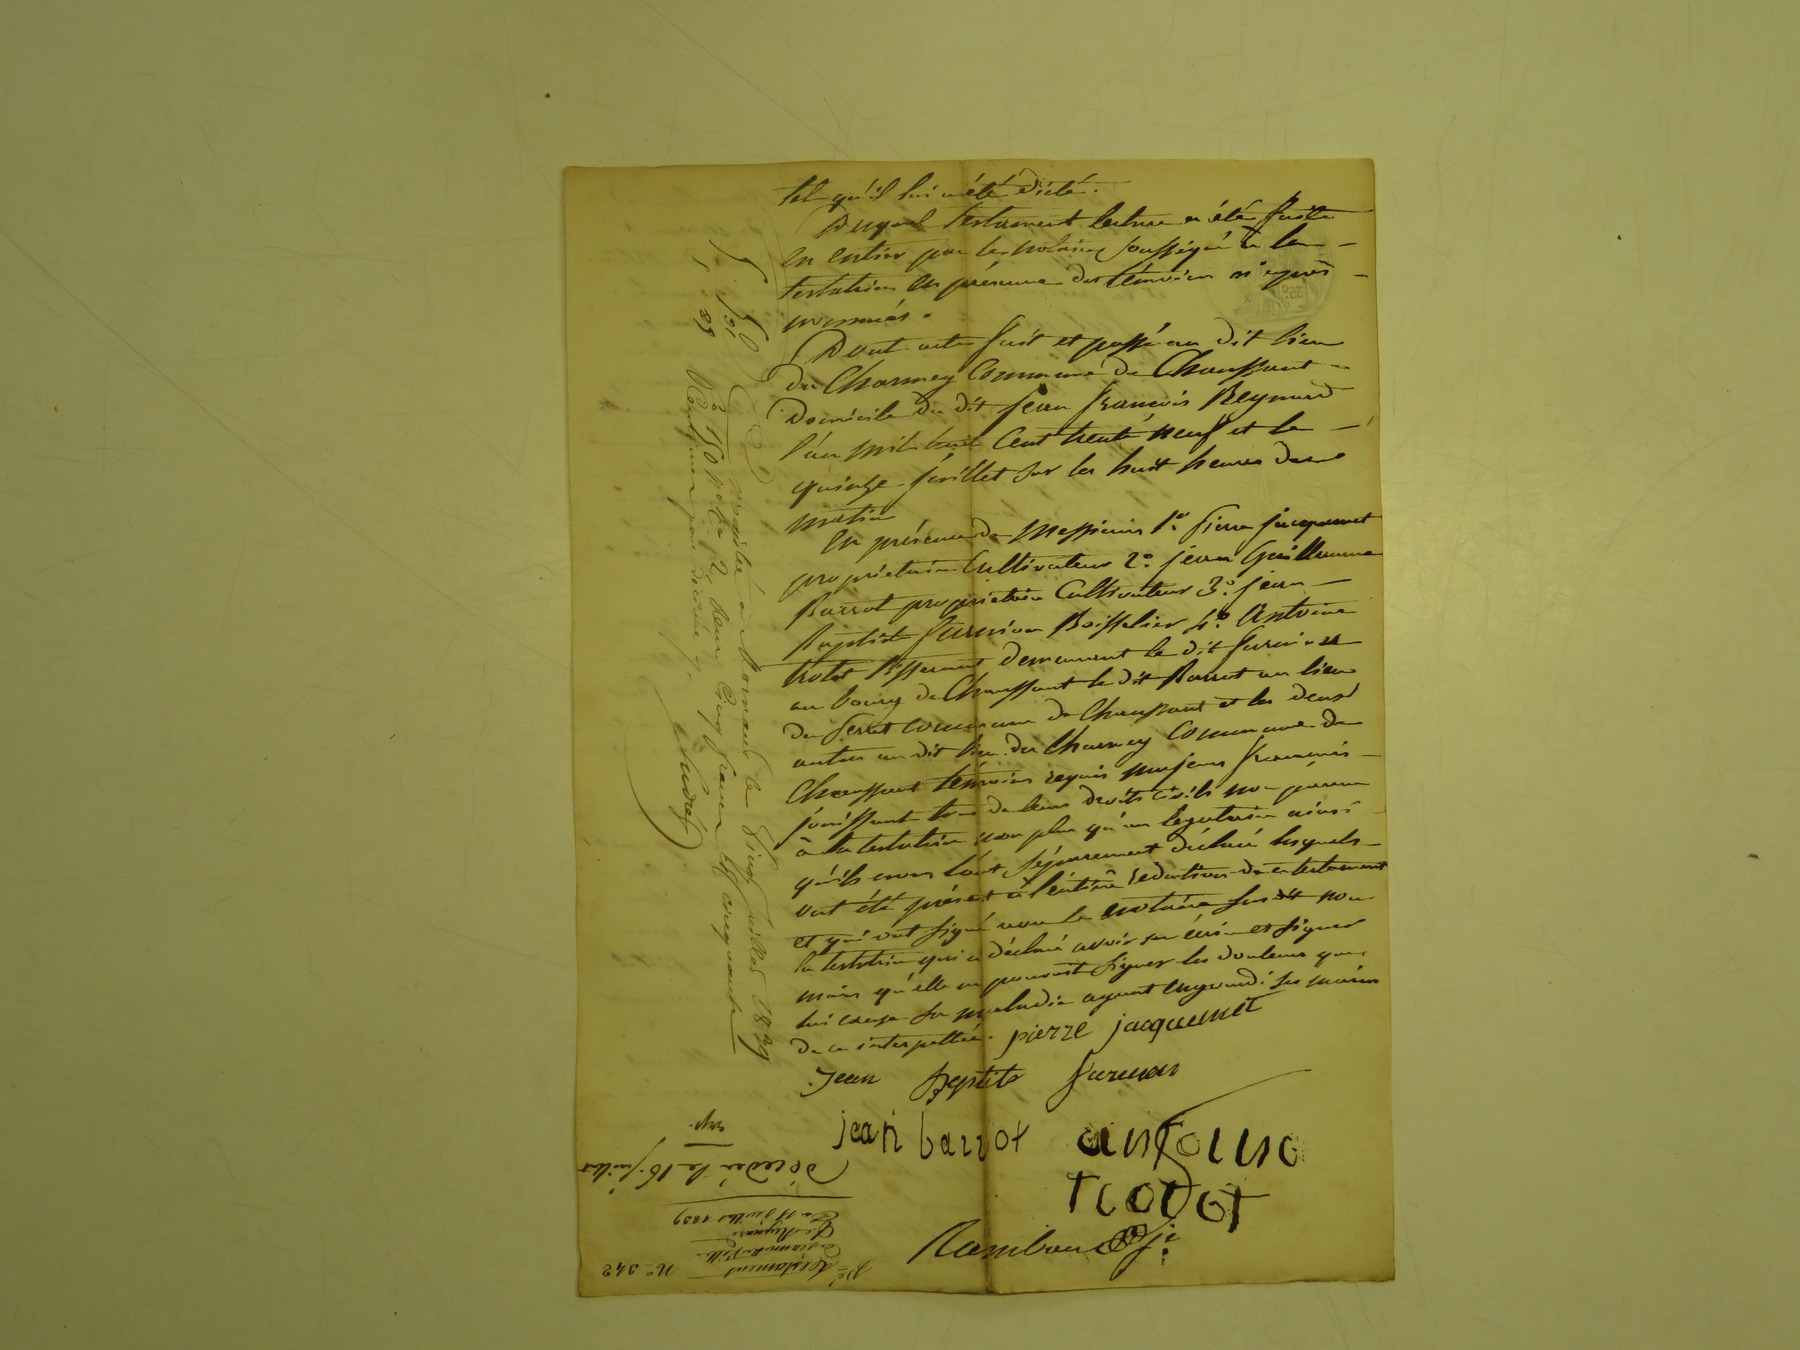 tel qu'il lui a été dicté.
Duquel testament lecture a été faite
en entier par le notaire soussigné à la
testatrice en présence des témoins ci après
nommés.
Dont acte fait et passé au dit lieu
du Charmey Commune de Chaussant
Domicile du dit jean françois Reynard
l'an mil huit Cent trente neuf et le
quinze juillet sur les huit heures du
matin
En présence de Messieurs 1º pierre jacquemet
proprietaire Cultivateur 2º jean Guillaume
Barrot proprietaire Cultivateur 3º jean
Baptiste furnion Boisselier 4º Antoine
demeurant le dit furnion
au bourg de Chaussant le dit Barrot au lieu
du Serret commune de Chaussant et les deux
autres au dit lieu du Charmey Commune de
Chaussant témoins requis majeurs francais
jouissant tous de leurs droits civils non parens
à la testatrice non plus qu'au légataire ainsi
qu'ils nous l'ont séparement déclaré lesquels
ont été présent à l'entière rédaction de ce testament
et qui ont signé avec le notaire susdit non
la testatrice qui a déclaré avoir su écrire et signer
mais qu'elle ne pouvait signer les douleurs que
lui cause sa maladie ayant engourdi ses mains
de ce interpellée. pierre jacquemet
Jean Baptiste furnion
jean barrot antoine
trodot
Rambaud
5
50
5 50
Enregistré à Mornant le juillet 1839
fº 150 Rº Cº 2 Reçu Cinq francs cinquante
centimes pour décime
Nº 342
Testament
Reynard
Du 15 juillet 1839
Décédée le 16 juillet
exp.